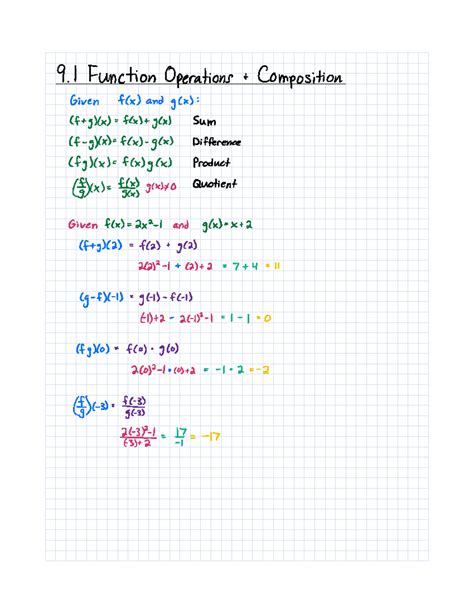 9.1 Function Operations + Composition
Given f(x) and g(x):
(f+g)(x) = f(x) + g(x) Sum
(f-g)(x) = f(x) - g(x) Difference
(fg)(x) = f(x) g(x) Product
(f/g)(x) = f(x)/g(x) g(x)≠0 Quotient
Given f(x) = 2x²-1 and g(x) = x+2
(f+g)(2) = f(2) + g(2)
2(2)²-1 + (2)+2 = 7 + 4 = 11
(g-f)(-1) = g(-1) - f(-1)
(-1)+2 - 2(-1)²-1 = 1 - 1 = 0
(fg)(0) = f(0) · g(0)
2(0)²-1 · (0)+2 = -1 · 2 = -2
(f/g)(-3) = f(-3)/g(-3)
2(-3)²-1/(-3)+2 = 17/-1 = -17